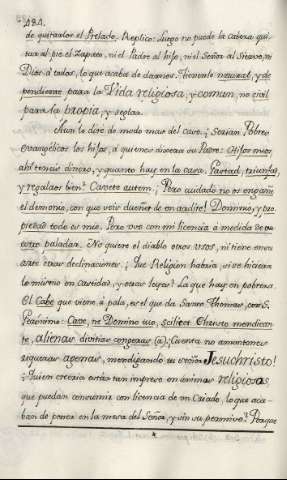 184.
de quitarlos el Prelado. Replico: Luego no puede la Cabeza qui-
tar al pie el Zapato, ni el Padre al hijo, ni el Señor al Siervo, ni
Dios à todos, lo que acaba de darnos. Tienenle neutral, y de-
pendiente para la Vida religiosa, y comun, no civil
para la propia, y seglar.
Aun lo dire de modo mas del caso. ¿Serian Pobres
evangelicos los hijos, à quienes dixera su Padre: Hijos mios
ahi teneis dinero, y quanto hay en la casa. Gastad, triunfad,
y regalaos bien? Cavete autem. ¡Pero cuidado no os engañe
el demonio, con que sois dueños de un ardite! Dominio, y pro-
piedad todo es mio. Pero usò con mi licencia à medida de vu-
estro paladar. No quiere el diablo otros usos, ni tiene en su
arte otras declinaciones. ¿Que Religion habria, si se hiciera
lo mismo en castidad, y otras leyes? La que hay en pobreza.
El Cabe que viene à pala, es el que da Santo Thomas, con S.
Geronimo: Cave, ne Domino tuo, scilicet Christo mendican-
te, alienas divitias congeras (a); Cuenta no amontones
riquezas agenas, mendigando tu Señor Jesuchristo!
¿Quien creeria estàr tan impreso en animas religiosas,
que puedan consumir con licencia de un Criado, lo que aca-
ban de poner en la mesa del Señor, y sin su permiso? Porque